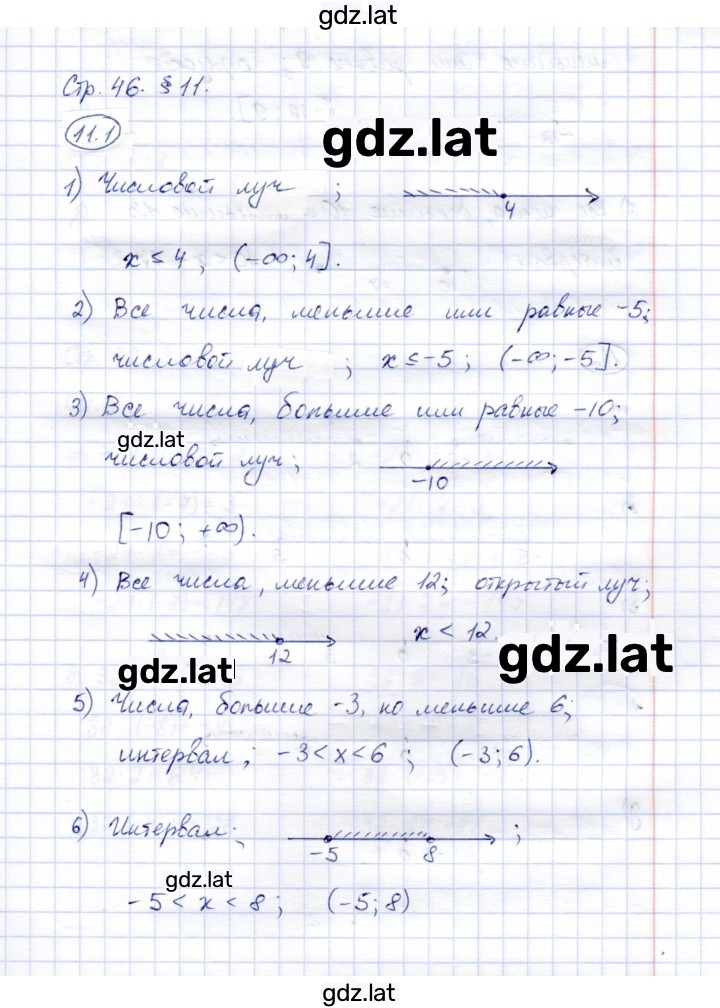 gdz.lat
Стр. 46. § 11.
11.1
gdz.lat
1) Числовой луч ;
4
x ≤ 4 ; (-∞; 4].
2) Все числа, меньшие или равные -5;
числовой луч ; x ≤ -5 ; (-∞; -5].
3) Все числа, большие или равные -10;
gdz.lat
числовой луч;
-10
[-10; +∞).
4) Все числа, меньшие 12; открытый луч;
12
x < 12.
gdz.lat
gdz.lat
5) Числа, большие -3, но меньшие 6;
интервал; -3 < x < 6 ; (-3; 6).
6) Интервал; ;
-5 8
gdz.lat
-5 < x < 8 ; (-5; 8)
gdz.lat